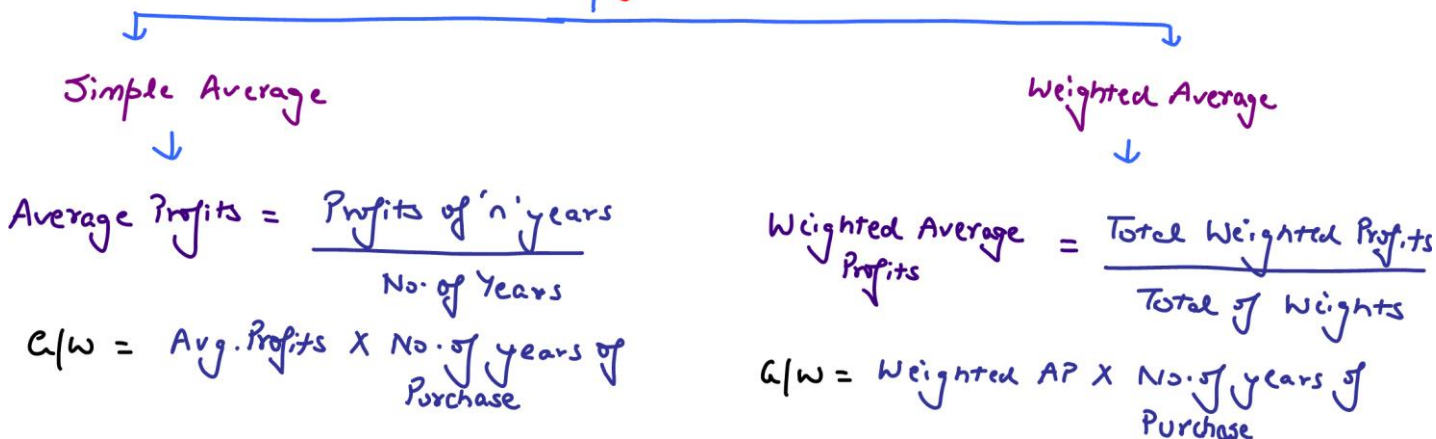 Simple Average
Average Profits = Profits of 'n' years
No. of Years
G/W = Avg. Profits X No. of years of
Purchase
Weighted Average
Weighted Average = Total Weighted Profits
Profits
Total of Weights
G/W = Weighted AP X No. of years of
Purchase